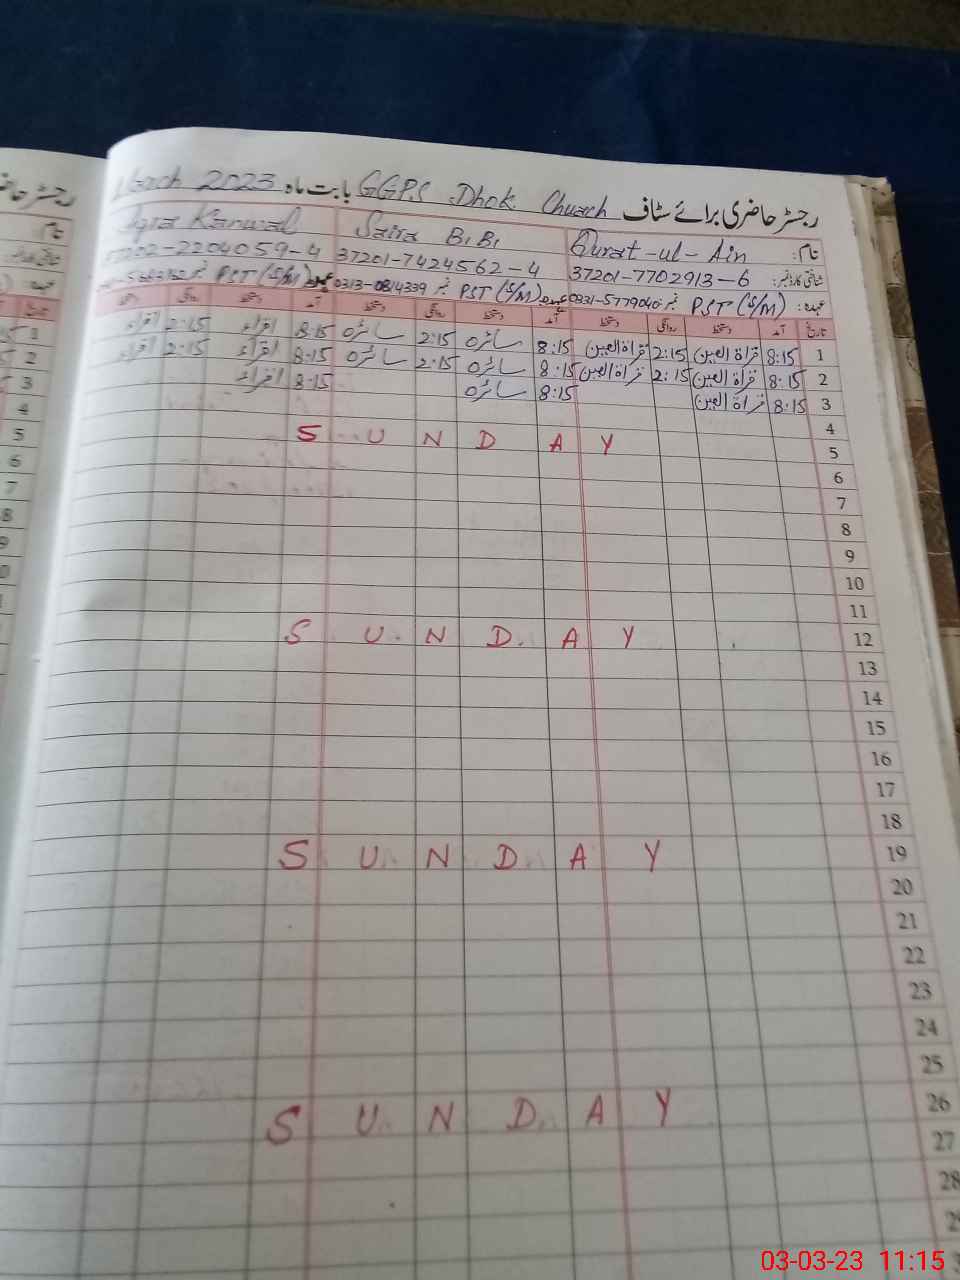 رجسٹر حاضری برائے سٹاف GGPS Dhok Church بابت ماہ March 2023
نام: Qurat-ul-Ain Saira BiBi Iqra Kanwal
شناختی کارڈ نمبر: 37201-7702913-6 37201-7424562-4 37202-2204059-4
عہدہ: PST (S/M) نمبر 0331-5779040 عہدہ PST (S/M) نمبر 0313-0814339 عہدہ PST (S/M) نمبر
تاریخ آمد دستخط روانگی دستخط آمد دستخط روانگی دستخط آمد دستخط روانگی دستخط
1 8:15 قراۃ العین 2:15 قراۃ العین 8:15 سائرہ 2:15 سائرہ 8:15 اقراء 2:15 اقراء
2 8:15 قراۃ العین 2:15 قراۃ العین 8:15 سائرہ 2:15 سائرہ 8:15 اقراء 2:15 اقراء
3 8:15 قراۃ العین 8:15 سائرہ 8:15 اقراء
4
5 SUNDAY
6
7
8
9
10
11
12 SUNDAY
13
14
15
16
17
18
19 SUNDAY
20
21
22
23
24
25
26 SUNDAY
27
28
03-03-23 11:15
رجسٹر
نام
1
2
3
4
5
6
7
8
9